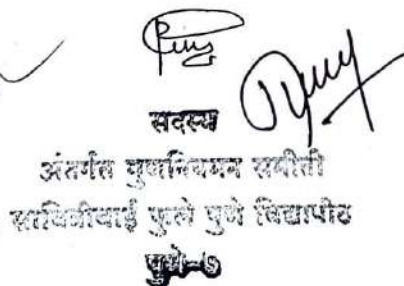 सदस्य
अंतर्गत गुणनियमन समीती
सावित्रीबाई फुले पुणे विद्यापीठ
पुणे-७